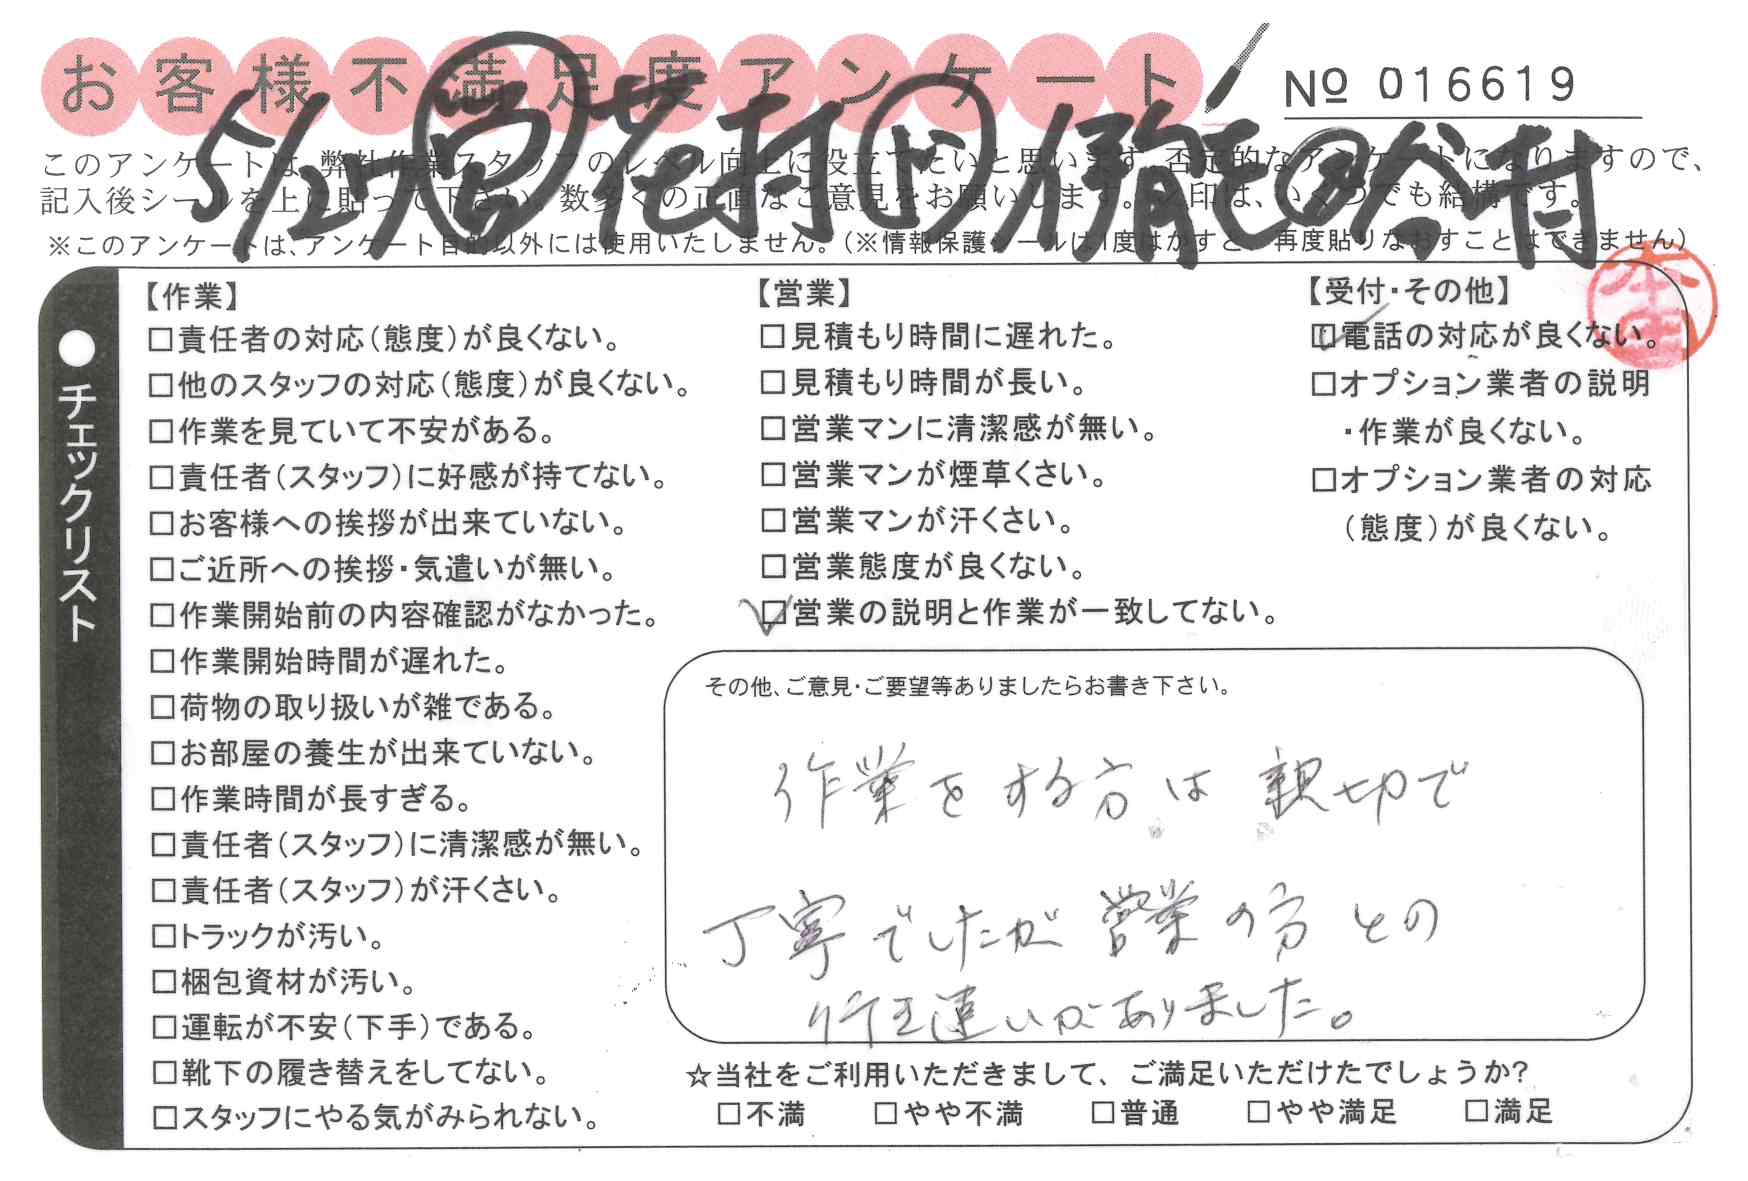 お客様不満足度アンケート
No 016619
このアンケートは、弊社作業スタッフのレベル向上に役立てたいと思います。否定的なアンケートになりますので、
記入後シールを上に貼って下さい。数多くの正直なご意見をお願いします。✓印は、いくつでも結構です。
※このアンケートは、アンケート目的以外には使用いたしません。(※情報保護シールは1度はがすと、再度貼りなおすことはできません)
5/25 営 花村
●チェックリスト
【作業】
□責任者の対応(態度)が良くない。
□他のスタッフの対応(態度)が良くない。
□作業を見ていて不安がある。
□責任者(スタッフ)に好感が持てない。
□お客様への挨拶が出来ていない。
□ご近所への挨拶・気遣いが無い。
□作業開始前の内容確認がなかった。
□作業開始時間が遅れた。
□荷物の取り扱いが雑である。
□お部屋の養生が出来ていない。
□作業時間が長すぎる。
□責任者(スタッフ)に清潔感が無い。
□責任者(スタッフ)が汗くさい。
□トラックが汚い。
□梱包資材が汚い。
□運転が不安(下手)である。
□靴下の履き替えをしてない。
□スタッフにやる気がみられない。
【営業】
□見積もり時間に遅れた。
□見積もり時間が長い。
□営業マンに清潔感が無い。
□営業マンが煙草くさい。
□営業マンが汗くさい。
□営業態度が良くない。
☑営業の説明と作業が一致してない。
【受付・その他】
☑電話の対応が良くない。
□オプション業者の説明
・作業が良くない。
□オプション業者の対応
(態度)が良くない。
その他、ご意見・ご要望等ありましたらお書き下さい。
作業をする方は親切で
丁寧でしたが営業の方との
行き違いがありました。
☆当社をご利用いただきまして、ご満足いただけたでしょうか?
□不満 □やや不満 □普通 □やや満足 □満足